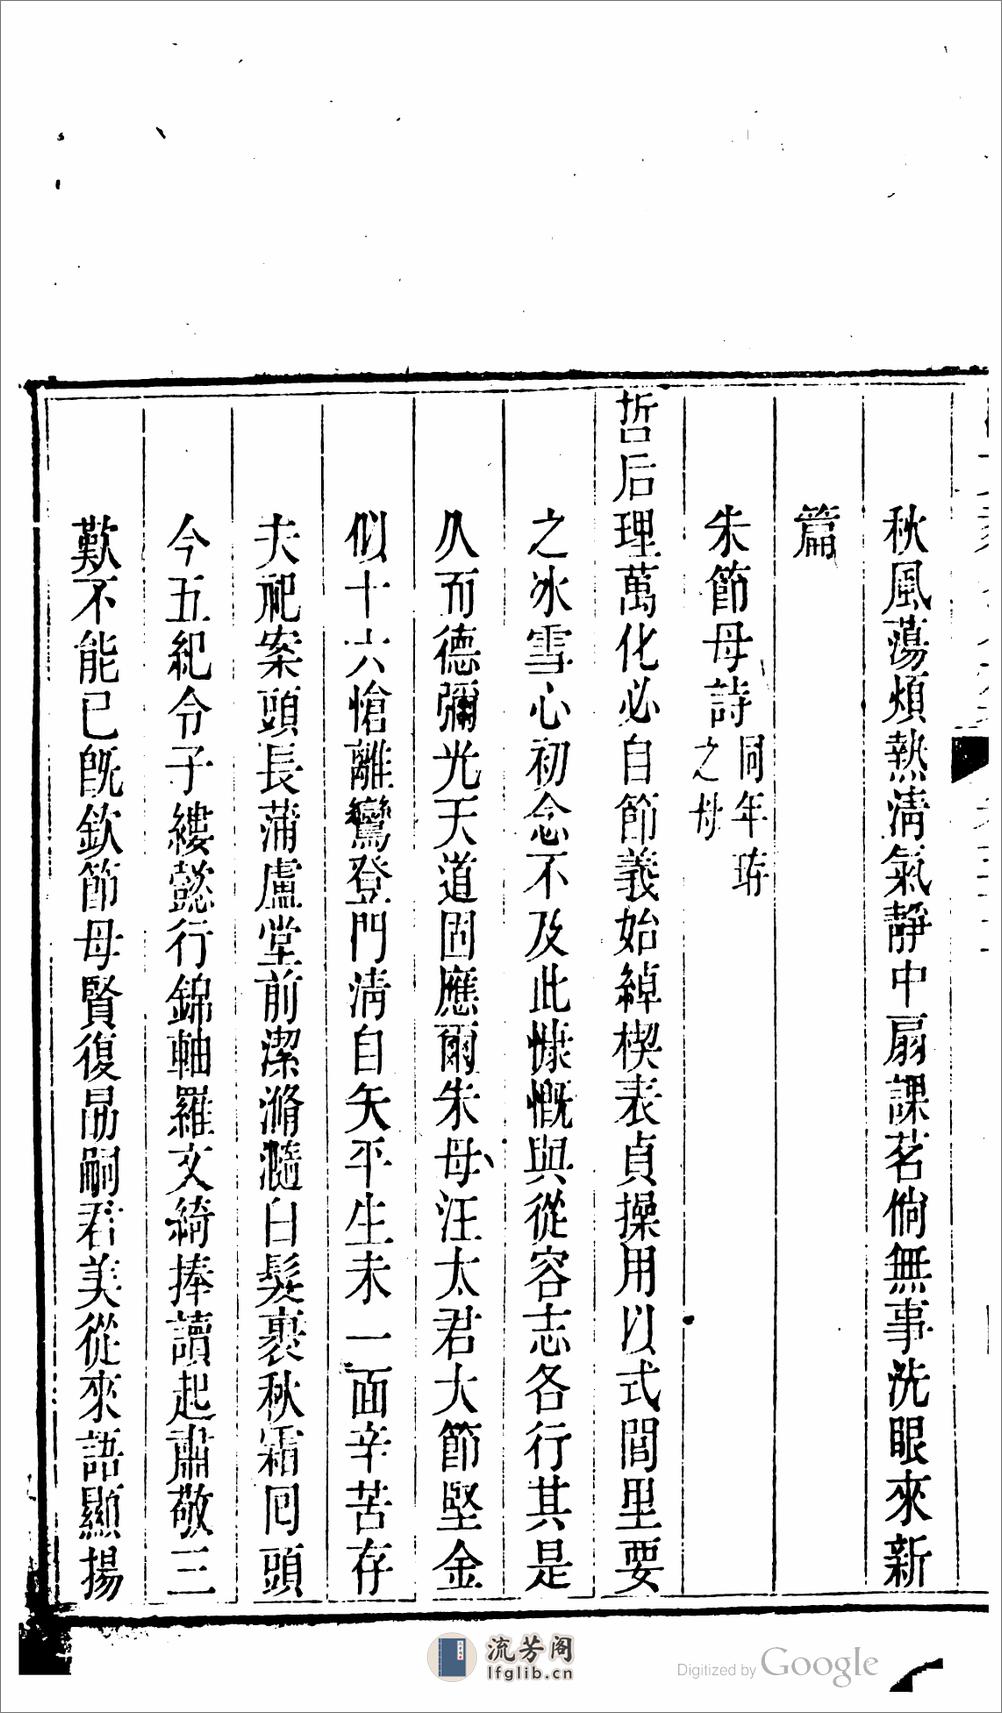 秋風蕩煩熱淸氣靜中扇課茗倘無事洗眼來新
篇
朱節母詩
同年琦
之母
哲后理萬化必自節義始綽楔表貞操用以式閭里要
之冰雪心初念不及此慷慨與從容志各行其是
久而德彌光天道固應爾朱母汪太君大節堅金
似十六愴離鸞登門淸自矢平生未一面辛苦存
夫祀案頭長蒲盧堂前潔滫瀡白髮裹秋霜囘頭
今五紀令子縷懿行錦軸羅文綺捧讀起肅敬三
歎不能已旣欽節母賢復勗嗣君美從來語顯揚
流芳阁
lfglib.cn
Digitized by Google